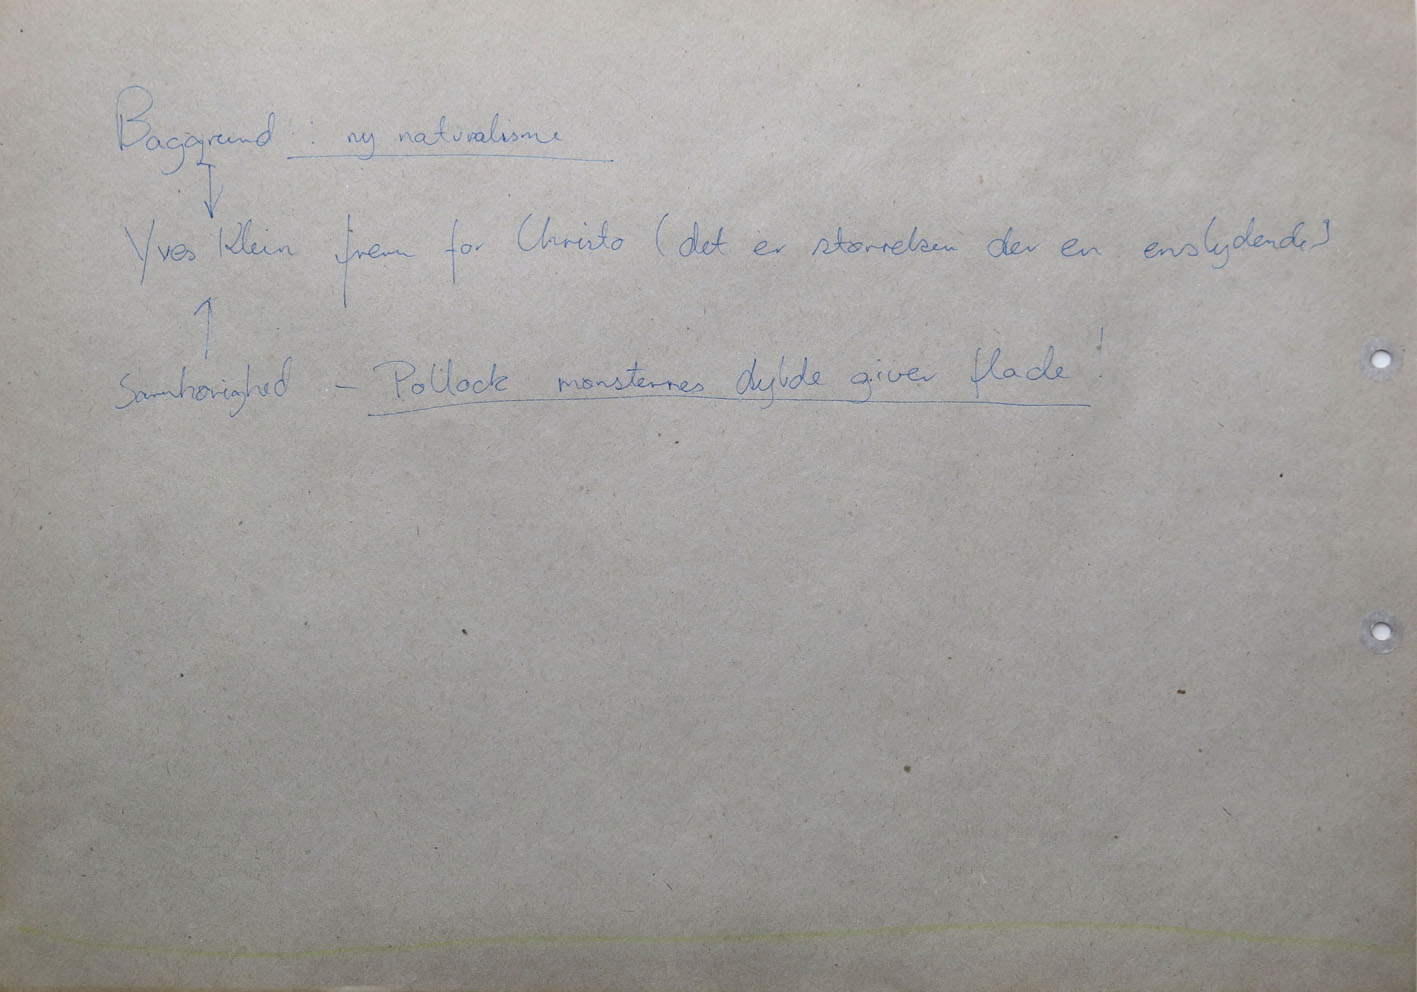 Baggrund : ny naturalisme
Yves Klein frem for Christo (det er størrelsen der en enslydende)
Samhørighed - Pollock mønsternes dybde giver flade!